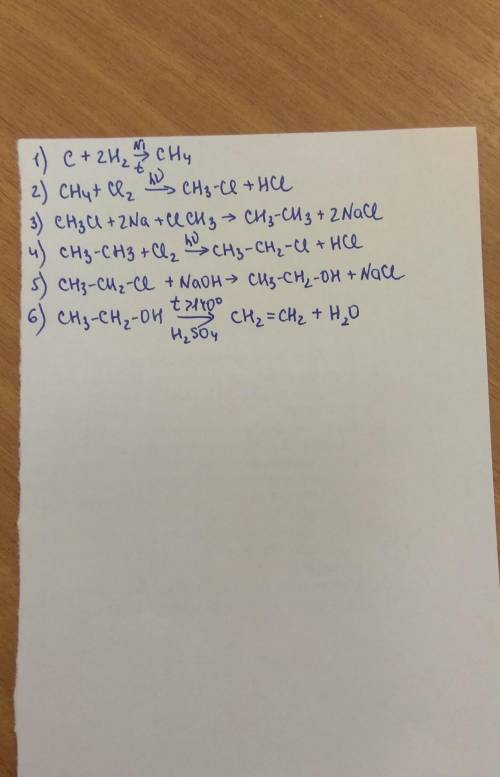 1) C + 2H₂ →(Ni, t) CH₄
2) CH₄ + Cl₂ →(hν) CH₃-Cl + HCl
3) CH₃Cl + 2Na + ClCH₃ → CH₃-CH₃ + 2NaCl
4) CH₃-CH3 + Cl₂ →(hν) CH₃-CH₂-Cl + HCl
5) CH₃-CH₂-Cl + NaOH → CH₃-CH₂-OH + NaCl
6) CH₃-CH₂-OH →(t>140°, H₂SO₄) CH₂=CH₂ + H₂O